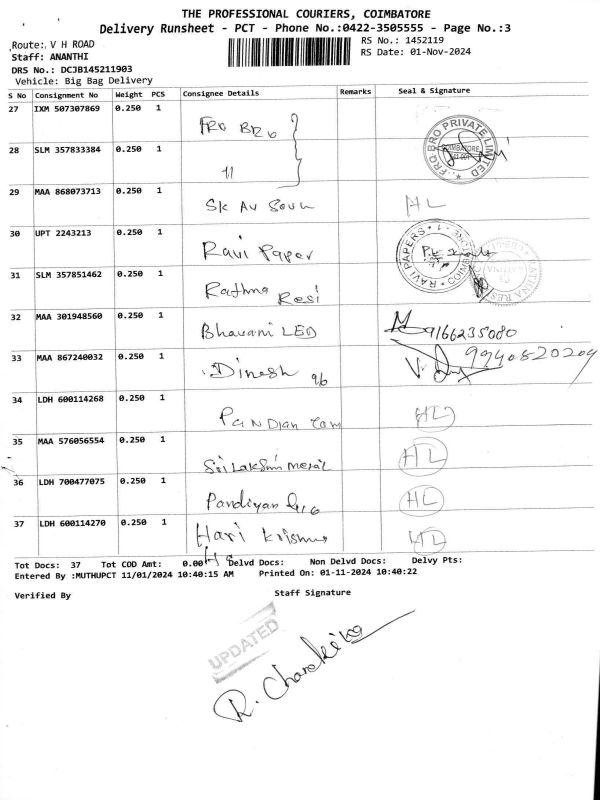 THE PROFESSIONAL COURIERS, COIMBATORE
Delivery Runsheet - PCT - Phone No.:0422-3505555 - Page No.:3
Route: V H ROAD RS No.: 1452119
Staff: ANANTHI RS Date: 01-Nov-2024
DRS No.: DCJB145211903
Vehicle: Big Bag Delivery
S No Consignment No Weight PCS Consignee Details Remarks Seal & Signature
27 IXM 507307869 0.250 1 FRQ BRO
FRQ BRO PRIVATE LIMITED
COIMBATORE
28 SLM 357833384 0.250 1 11
29 MAA 868073713 0.250 1 SK AV HL
30 UPT 2243213 0.250 1 Ravi Paper
RAVI PAPERS
31 SLM 357851462 0.250 1 Rathna Resi
32 MAA 301948560 0.250 1 Bhavani LED 9166235080
33 MAA 867240032 0.250 1 Dinesh 96 9940820209
34 LDH 600114268 0.250 1 Pandian Com HL
35 MAA 576056554 0.250 1 Sri Lakshmi Metal HL
36 LDH 700477075 0.250 1 Pandiyan HL
37 LDH 600114270 0.250 1 Hari Krishna HL
Hs
Tot Docs: 37 Tot COD Amt: 0.00 Delvd Docs: Non Delvd Docs: Delvy Pts:
Entered By :MUTHUPCT 11/01/2024 10:40:15 AM Printed On: 01-11-2024 10:40:22
Verified By Staff Signature
UPDATED